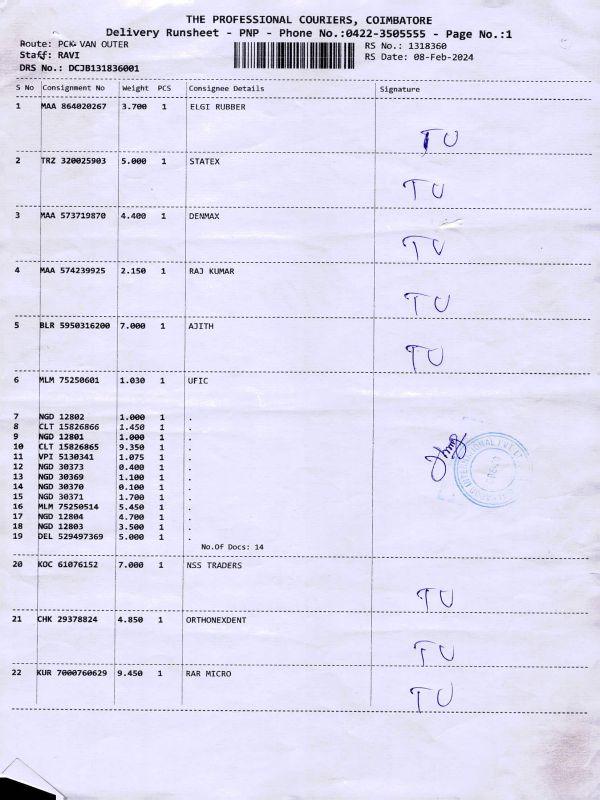 THE PROFESSIONAL COURIERS, COIMBATORE
Delivery Runsheet - PNP - Phone No.:0422-3505555 - Page No.:1
Route: PCK VAN OUTER
RS No.: 1318360
Staff: RAVI
RS Date: 08-Feb-2024
DRS No.: DCJB131836001
S No Consignment No Weight PCS Consignee Details Signature
1 MAA 864020267 3.700 1 ELGI RUBBER
TU
2 TRZ 320025903 5.000 1 STATEX
TU
3 MAA 573719870 4.400 1 DENMAX
TU
4 MAA 574239925 2.150 1 RAJ KUMAR
TU
5 BLR 5950316200 7.000 1 AJITH
TU
6 MLM 75250601 1.030 1 UFIC
7 NGD 12802 1.000 1 .
8 CLT 15826866 1.450 1 .
9 NGD 12801 1.000 1 .
10 CLT 15826865 9.350 1 .
11 VPI 5130341 1.075 1 .
12 NGD 30373 0.400 1 .
13 NGD 30369 1.100 1 .
14 NGD 30370 0.100 1 .
15 NGD 30371 1.700 1 .
16 MLM 75250514 5.450 1 .
17 NGD 12804 4.700 1 .
18 NGD 12803 3.500 1 .
19 DEL 529497369 5.000 1 .
No.Of Docs: 14
20 KOC 61076152 7.000 1 NSS TRADERS
TU
21 CHK 29378824 4.850 1 ORTHONEXDENT
TU
22 KUR 7000760629 9.450 1 RAR MICRO
TU